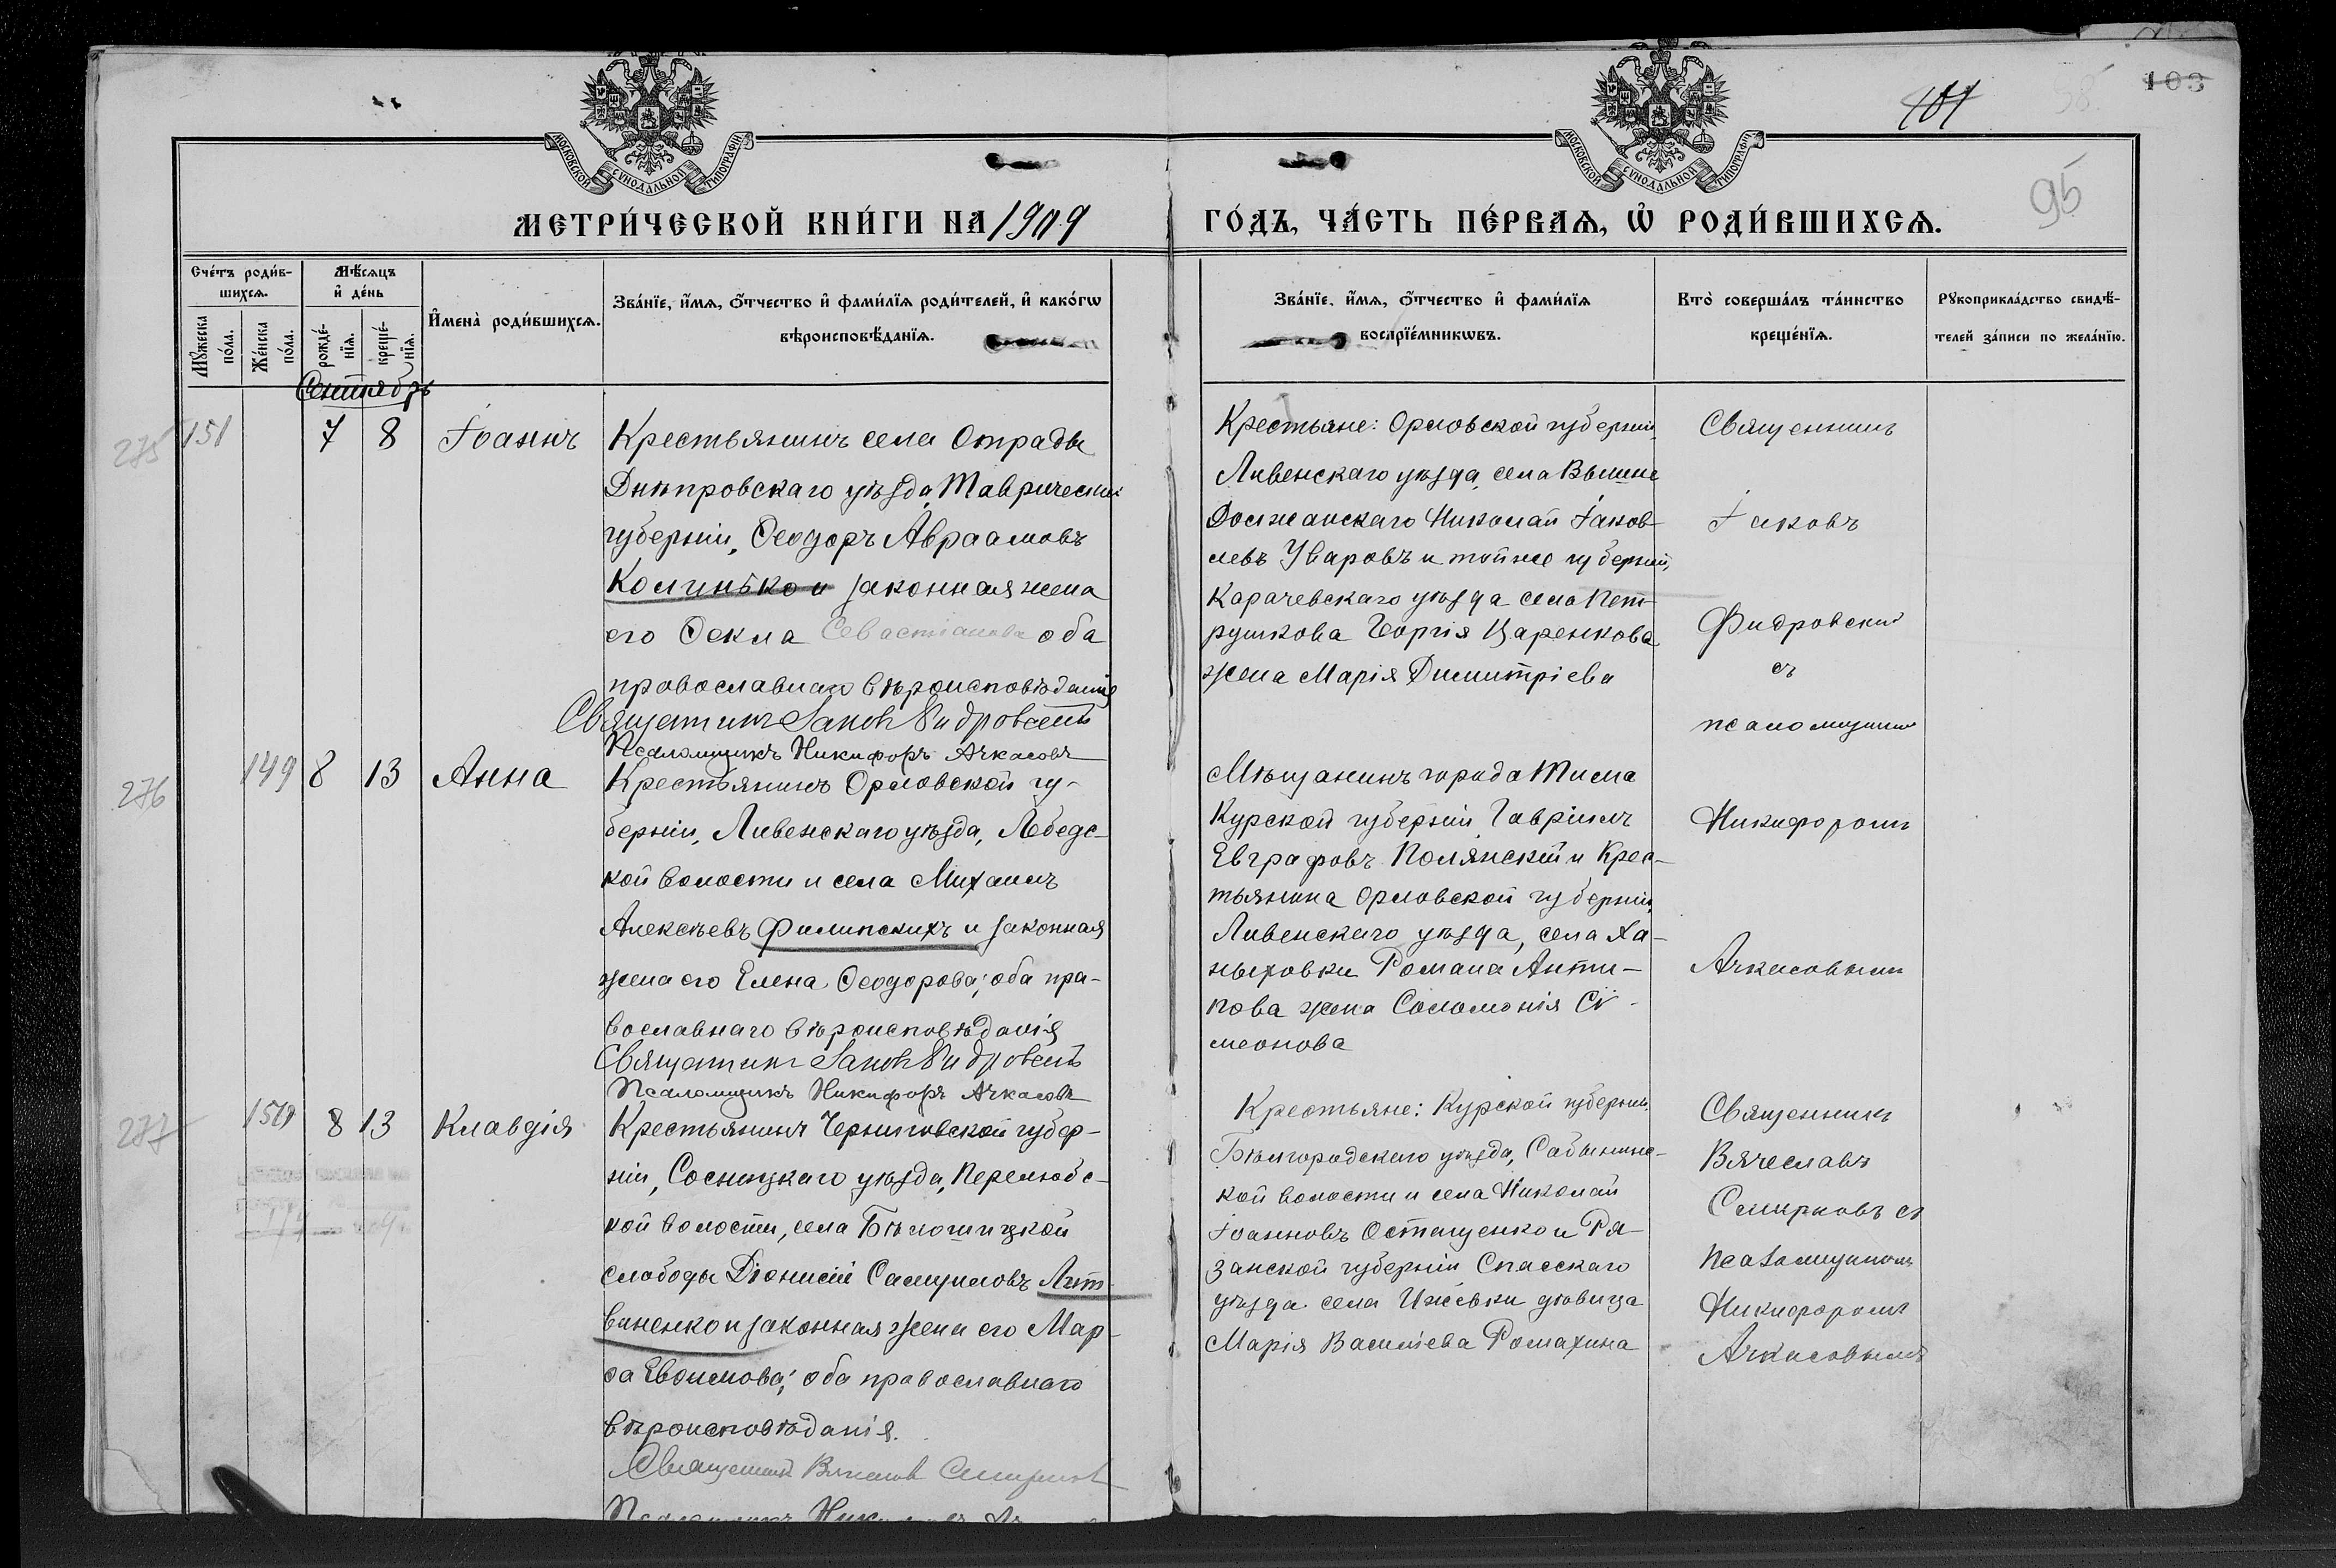 МОСКОВСКОЙ СѴНОДАЛЬНОЙ ТИПОГРАФІИ
МОСКОВСКОЙ СѴНОДАЛЬНОЙ ТИПОГРАФІИ
101
103
95
МЕТРИ́ЧЕСКОЙ КНИ́ГИ НА 1909
ГО́ДЪ, ЧА́СТЬ ПЕ́РВАѦ, Ѡ҆ РОДИ́ВШИХСѦ.
Сче́тъ роди́в-
шихсѧ.
Мꙋ́жеска по́ла.
Же́нска по́ла.
Мѣ́сѧцъ
и҆ де́нь
рожде́-
нїѧ.
креще́-
нїѧ.
И҆мена̀ роди́вшихсѧ.
Зва́нїе, и҆́мѧ, ѻ҆́тчество и҆ фами́лїѧ роди́телей, и҆ како́гѡ
вѣроисповѣ́данїѧ.
Зва́нїе, и҆́мѧ, ѻ҆́тчество и҆ фами́лїѧ
воспрїе́мникѡвъ.
Кто̀ соверша́лъ та́инство
креще́нїѧ.
Рꙋкоприкла́дство свидѣ́-
телей за́писи по жела́нїю.
Сентябрь
275 151 7 8 Іоаннъ
Крестьянинъ села Отрады
Днѣпровскаго уѣзда, Таврической
губерніи, Ѳеодоръ Авраамовъ
Колинько и законная жена
его Ѳекла Севастіанова оба
православнаго вѣроисповѣданія
Священникъ Іаковъ Фидровскій
Псаломщикъ Никифоръ Ачкасовъ
Крестьяне: Орловской губерніи,
Ливенскаго уѣзда, села Вышне
Должанскаго Николай Іаков-
левъ Уваровъ и тойже губерніи,
Карачевскаго уѣзда села Пет-
рушкова Георгія Царенкова
жена Марія Димитріева
Священникъ
Іаковъ
Фидровскій
съ
псаломщикомъ
Никифоромъ
Ачкасовымъ
276 149 8 13 Анна
Крестьянинъ Орловской гу-
берніи, Ливенскаго уѣзда, Лебедс-
кой волости и села Михаилъ
Алексѣевъ Филипскихъ и законная
жена его Елена Ѳеодорова; оба пра-
вославнаго вѣроисповѣданія
Священникъ Іаковъ Фидровскій
Псаломщикъ Никифоръ Ачкасовъ
Мѣщанинъ города Тима
Курской губерніи Гавріилъ
Евграфовъ Полянскій и Крес-
тьянина Орловской губерніи,
Ливенскаго уѣзда, села
Романа Анти-
пова жена Соломонія Сѵ-
меонова
277 150 8 13 Клавдія
Крестьянинъ Черниговской губер-
ніи, Сосницкаго уѣзда, Перелюбс-
кой волости, села Бѣлошицкой
слободы Діонисій Самуиловъ Лит-
виненко и законная жена его Мар-
ѳа Евѳимова; оба православнаго
вѣроисповѣданія.
Священникъ Вячеславъ Смирновъ
Псаломщикъ
Крестьяне: Курской губерніи,
Бѣлгородскаго уѣзда, Сабынинс-
кой волости и села Николай
Іоанновъ Остащенко и Ря-
занской губерніи Спасскаго
уѣзда села Ижевки дѣвица
Марія Василіева Ромахина
Священникъ
Вячеславъ
Смирновъ съ
псаломщикомъ
Никифоромъ
Ачкасовымъ